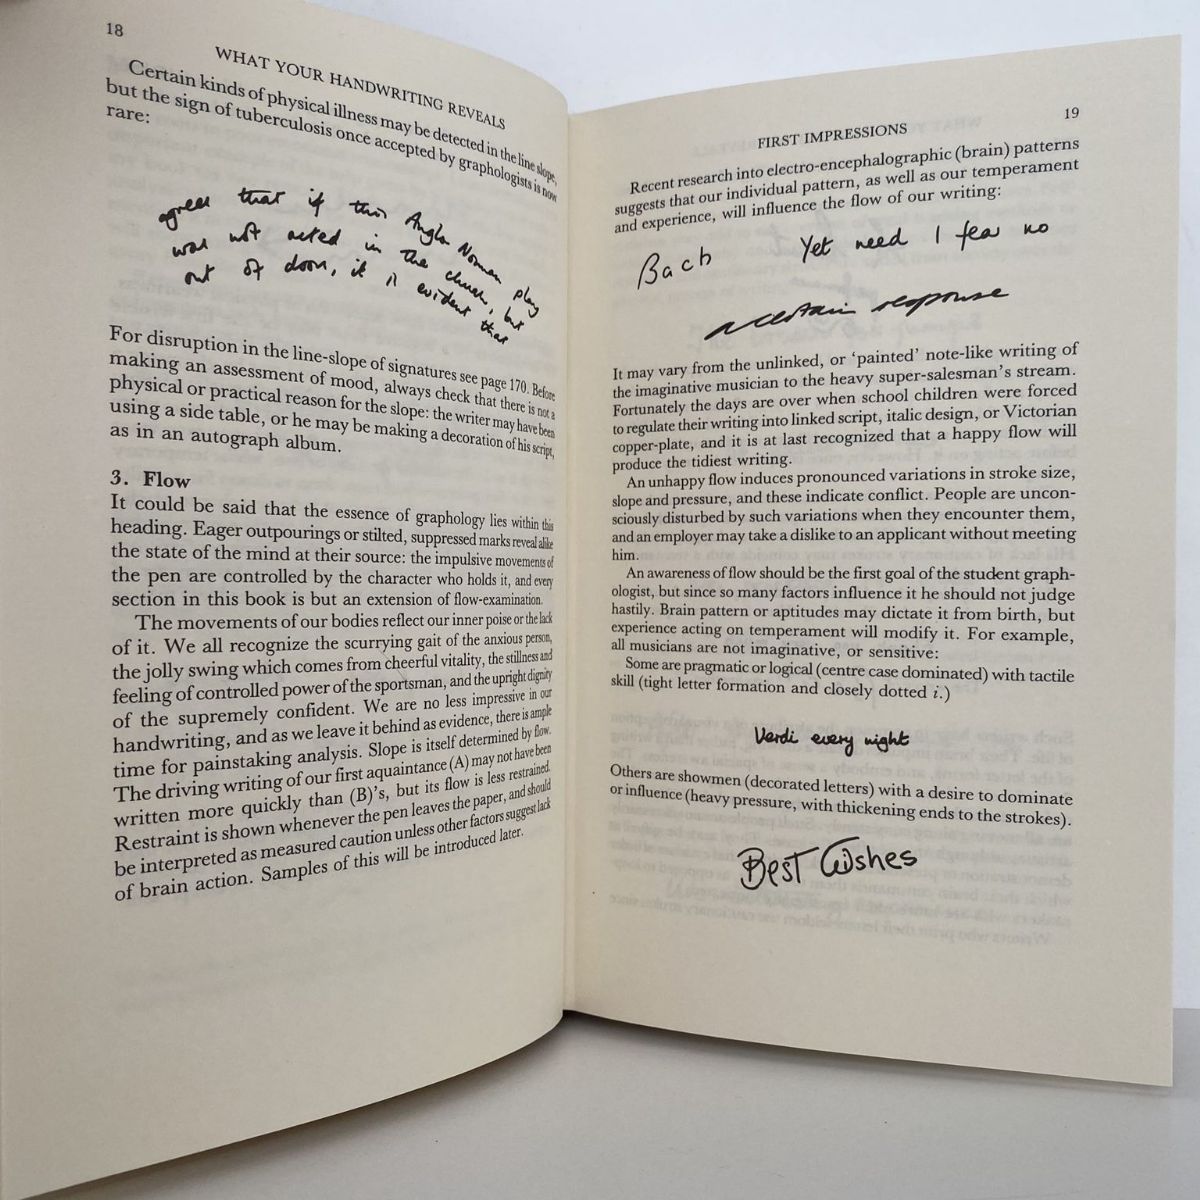 18
WHAT YOUR HANDWRITING REVEALS
Certain kinds of physical illness may be detected in the line slope,
but the sign of tuberculosis once accepted by graphologists is now
rare:
agree that if this Anglo Norman play
was not acted in the church, but
out of doors, it is evident that
For disruption in the line-slope of signatures see page 170. Before
making an assessment of mood, always check that there is not a
physical or practical reason for the slope: the writer may have been
using a side table, or he may be making a decoration of his script,
as in an autograph album.
3. Flow
It could be said that the essence of graphology lies within this
heading. Eager outpourings or stilted, suppressed marks reveal alike
the state of the mind at their source: the impulsive movements of
the pen are controlled by the character who holds it, and every
section in this book is but an extension of flow-examination.
The movements of our bodies reflect our inner poise or the lack
of it. We all recognize the scurrying gait of the anxious person,
the jolly swing which comes from cheerful vitality, the stillness and
feeling of controlled power of the sportsman, and the upright dignity
of the supremely confident. We are no less impressive in our
handwriting, and as we leave it behind as evidence, there is ample
time for painstaking analysis. Slope is itself determined by flow.
The driving writing of our first aquaintance (A) may not have been
written more quickly than (B)'s, but its flow is less restrained.
Restraint is shown whenever the pen leaves the paper, and should
be interpreted as measured caution unless other factors suggest lack
of brain action. Samples of this will be introduced later.
19
FIRST IMPRESSIONS
Recent research into electro-encephalographic (brain) patterns
suggests that our individual pattern, as well as our temperament
and experience, will influence the flow of our writing:
Bach Yet need I fear no
a certain response
It may vary from the unlinked, or 'painted' note-like writing of
the imaginative musician to the heavy super-salesman's stream.
Fortunately the days are over when school children were forced
to regulate their writing into linked script, italic design, or Victorian
copper-plate, and it is at last recognized that a happy flow will
produce the tidiest writing.
An unhappy flow induces pronounced variations in stroke size,
slope and pressure, and these indicate conflict. People are uncon-
sciously disturbed by such variations when they encounter them,
and an employer may take a dislike to an applicant without meeting
him.
An awareness of flow should be the first goal of the student graph-
ologist, but since so many factors influence it he should not judge
hastily. Brain pattern or aptitudes may dictate it from birth, but
experience acting on temperament will modify it. For example,
all musicians are not imaginative, or sensitive:
Some are pragmatic or logical (centre case dominated) with tactile
skill (tight letter formation and closely dotted i.)
Verdi every night
Others are showmen (decorated letters) with a desire to dominate
or influence (heavy pressure, with thickening ends to the strokes).
Best Wishes